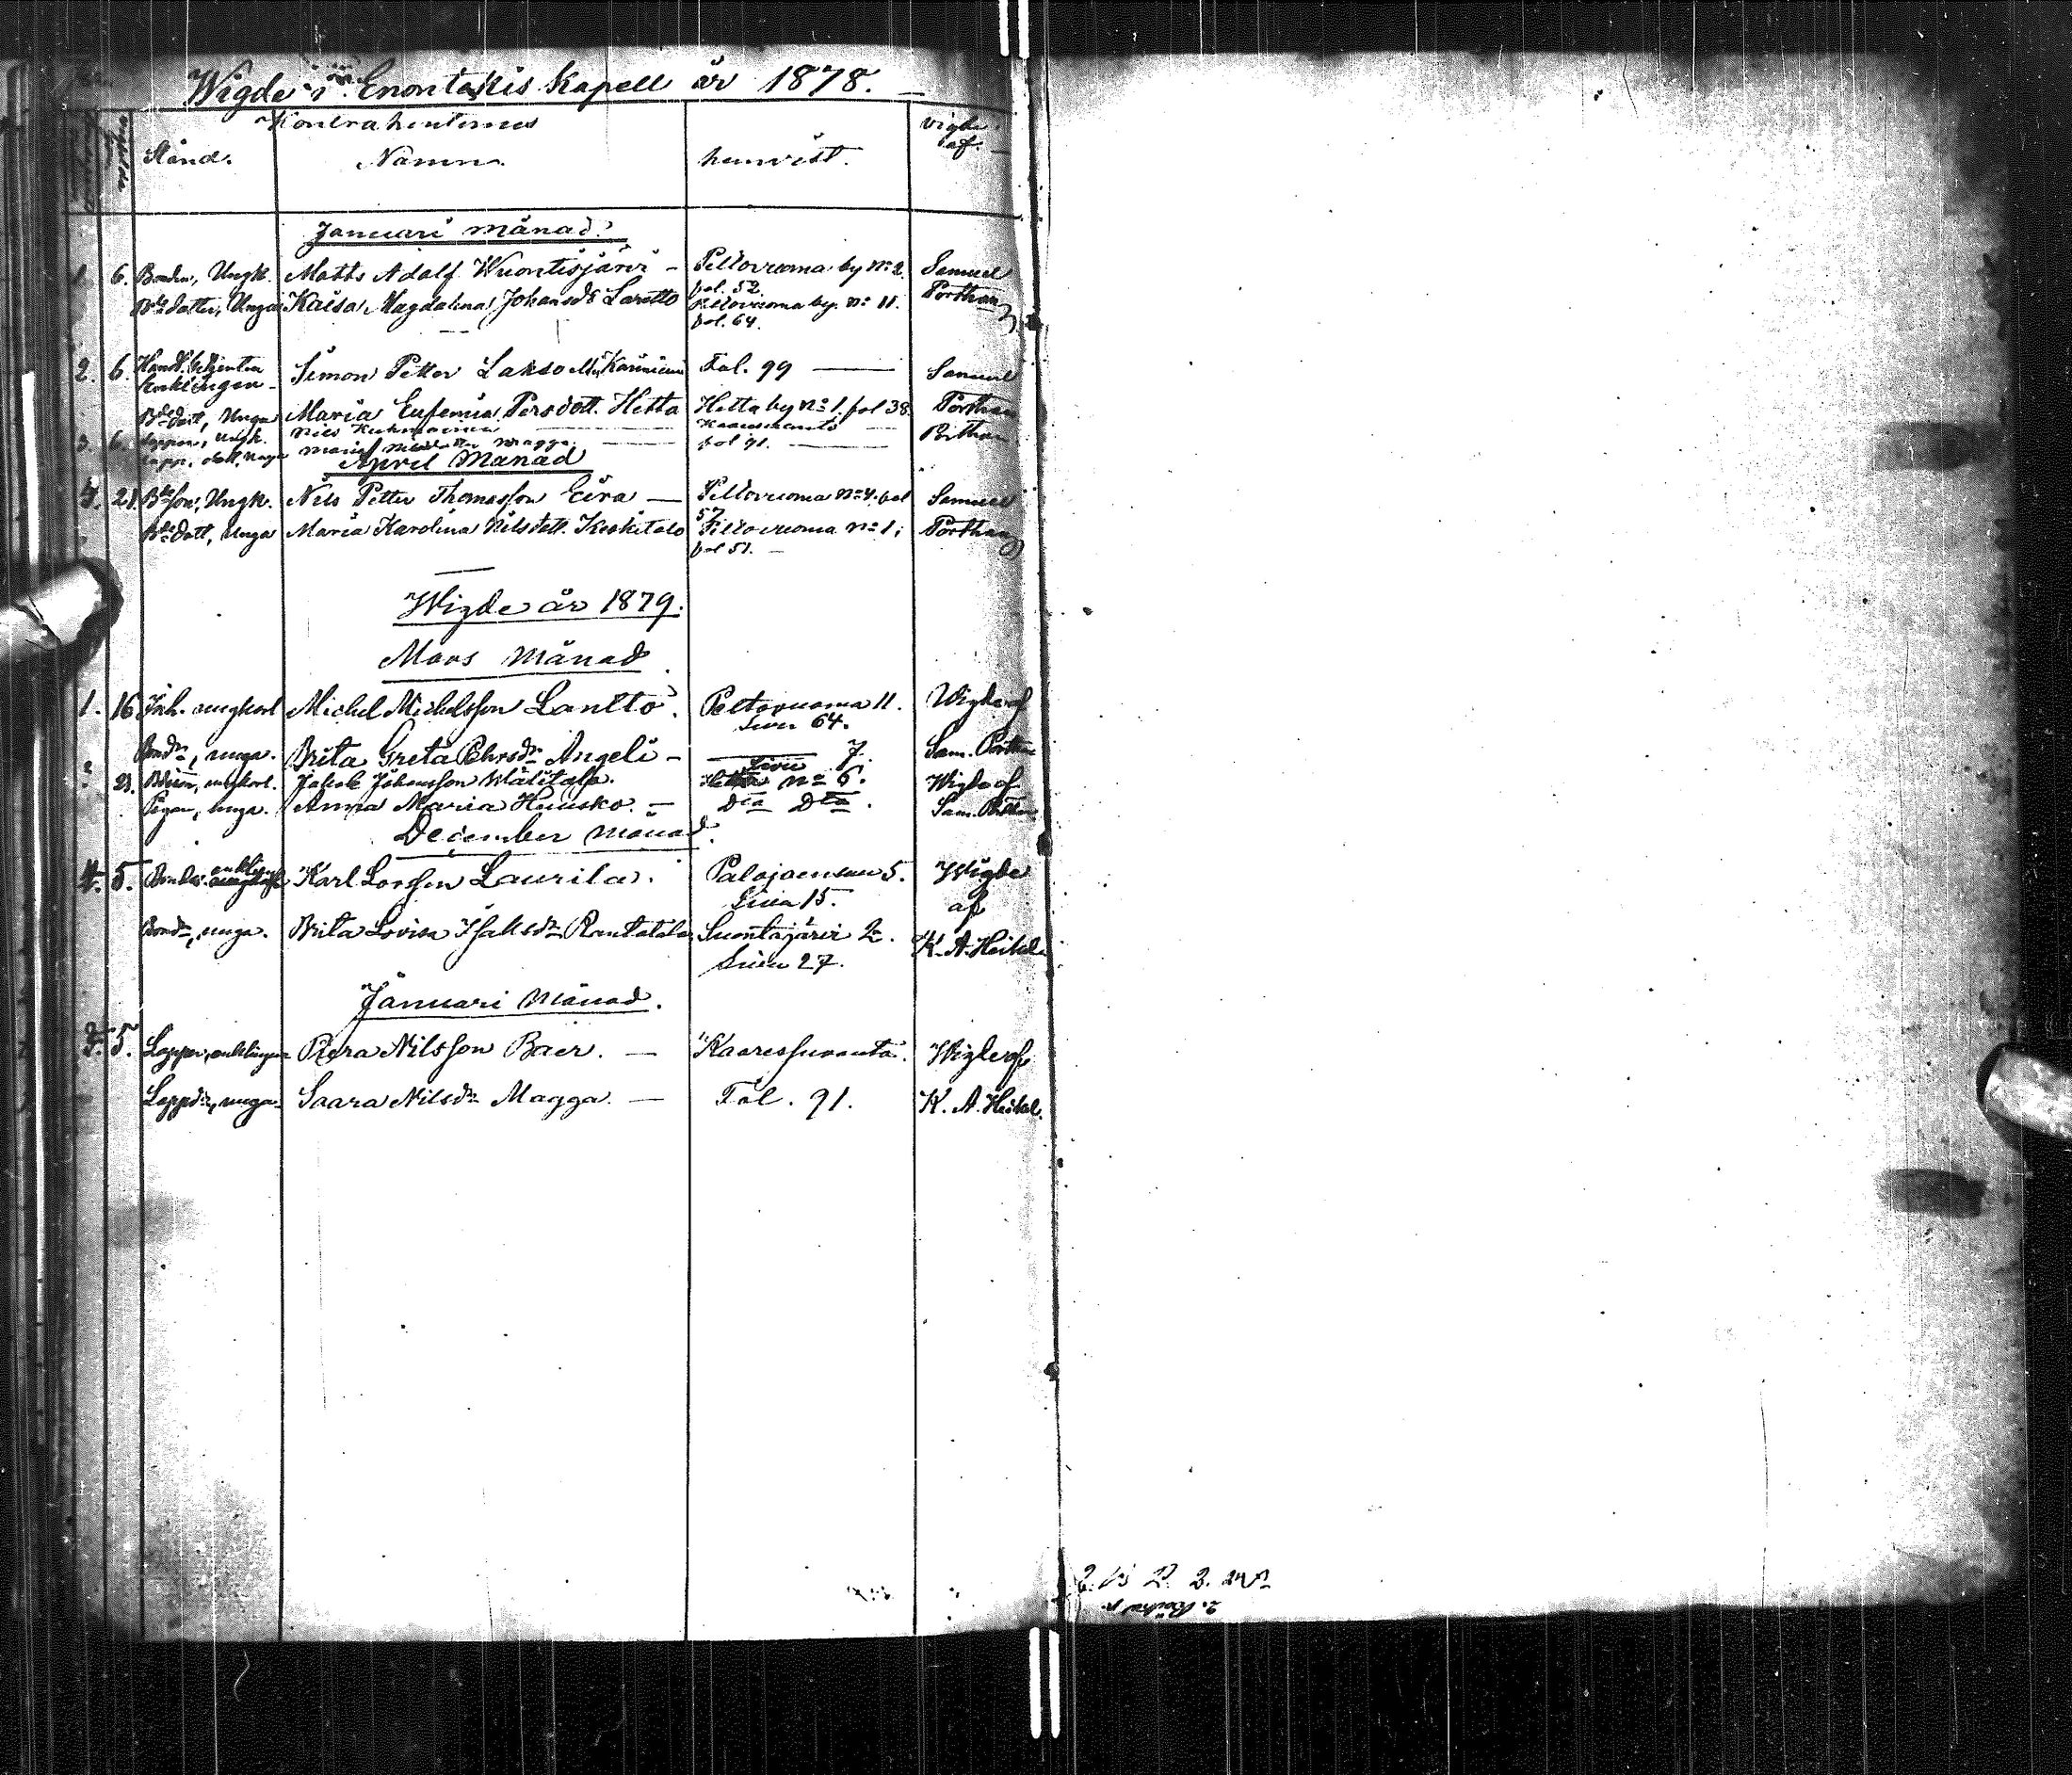 Wigde i Enontekis Kapell år 1878.
Kontrahenternes
Stånd. Namn. hemvist. vigde af.
Januari månad.
1. 6. Bonden, Ungk. Matts Adolf Wuontisjärvi – Peltovuoma by No 2. fol. 52. Samuel
Bde dotter, Unga Kaisa Magdalena Johansdr Lanto Peltovuoma by. No 11. fol. 64. Porthan
2. 6. Enklingen Simon Petter Lakso Fol. 99 Samuel
Bde dott, Unga Maria Eufemia Persdott. Hetta Hetta by No 1. fol 38. Porthan
3. 6. Lappen, Ungk. Nils
Lapp. dott, Unga Maria Magga fol 91. Porthan
April Månad
4. 21. Bde son, Ungk. Nils Petter Thomasson Eira — Peltovuoma No 4. fol 57 Samuel
Bde dott, Unga Maria Karolina Nilsdott. Keskitalo Peltovuoma No 1; fol 51. – Porthan
Wigde år 1879.
Mars Månad
1. 16 Inh. ungkarl Michel Michelsson Lantto. Peltovuoma 11. Sivu 64. Wigde af
Bondd, unga. Brita Greta Pehrsdr Angeli – 7. Sivu Sam. Porthan
23. ungkarl. Jakob Johansson Wälitalo. Hetta No 6. Wigde af
Pigan, unga. Anna Maria Huusko. – Dta Dta. Sam. Porthan
December månad.
4. 5. Bonden enkling Karl Larsson Laurila. Palojoensuu 5. Sivu 15. Wigde af
Bondd, unga. Brita Lovisa Isaksdr Rautatalo Suontajärvi 2. Sivu 27. K. A. Heikel
Januari Månad.
5. Lappen, enklingen Piera Nilsson Baer. — Kaaressuvanto. Wigde af
Lappdr, unga Saara Nilsdr Magga. — Fol. 91. K. A. Heikel.